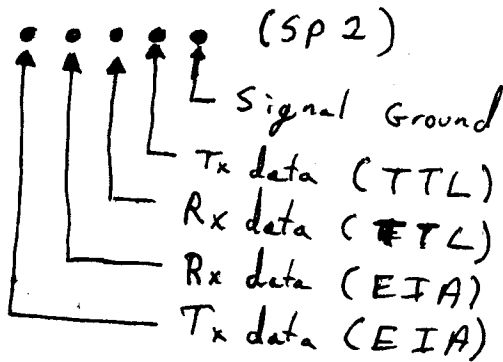 (SP2)
Signal Ground
Tx data (TTL)
Rx data (TTL)
Rx data (EIA)
Tx data (EIA)